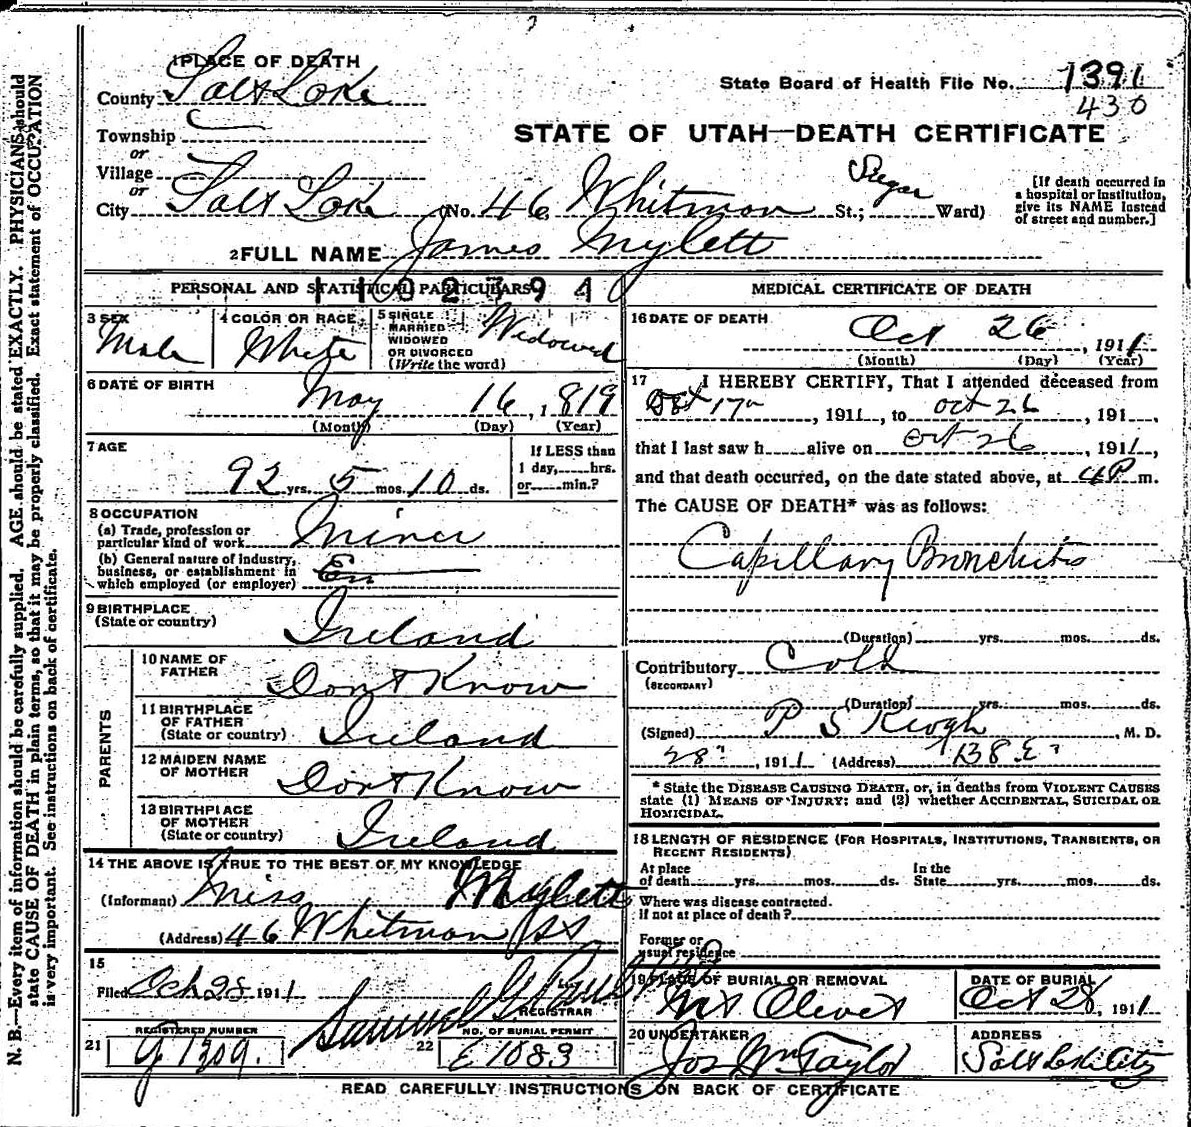 1 PLACE OF DEATH
County Salt Lake
State Board of Health File No. 1391
430
Township
or
STATE OF UTAH—DEATH CERTIFICATE
Village
or
City Salt Lake No. 46 Whitmon St.; Sugar Ward)
[If death occurred in a hospital or institution, give its NAME instead of street and number.]
2 FULL NAME James Mylett
PERSONAL AND STATISTICAL PARTICULARS
3 SEX
Male
4 COLOR OR RACE
White
5 SINGLE
MARRIED
WIDOWED
OR DIVORCED
(Write the word)
Widowed
6 DATE OF BIRTH
May 16, 1819
(Month) (Day) (Year)
7 AGE
92 yrs. 5 mos. 10 ds.
If LESS than
1 day, hrs.
or min.?
8 OCCUPATION
(a) Trade, profession or
particular kind of work Miner
(b) General nature of industry,
business, or establishment in
which employed (or employer)
9 BIRTHPLACE
(State or country) Ireland
PARENTS
10 NAME OF
FATHER Dont Know
11 BIRTHPLACE
OF FATHER
(State or country) Ireland
12 MAIDEN NAME
OF MOTHER Dont Know
13 BIRTHPLACE
OF MOTHER
(State or country) Ireland
14 THE ABOVE IS TRUE TO THE BEST OF MY KNOWLEDGE
(Informant) Miss Mylett
(Address) 46 Whitmon St
15
Filed Oct 28 1911 Samuel G
REGISTRAR
REGISTERED NUMBER
21 g 1309.
NO. OF BURIAL PERMIT
22 E 1083
MEDICAL CERTIFICATE OF DEATH
16 DATE OF DEATH
Oct 26, 1911
(Month) (Day) (Year)
17 I HEREBY CERTIFY, That I attended deceased from
Oct 17, 1911, to Oct 26, 191
that I last saw h alive on Oct 26, 1911,
and that death occurred, on the date stated above, at 4 P m.
The CAUSE OF DEATH* was as follows:
Capillary Bronchitis
(Duration) yrs. mos. ds.
Contributory Cold
(SECONDARY)
(Duration) yrs. mos. ds.
(Signed) P S Keogh, M. D.
28, 1911 (Address) 138 E
* State the DISEASE CAUSING DEATH, or, in deaths from VIOLENT CAUSES
state (1) MEANS OF INJURY; and (2) whether ACCIDENTAL, SUICIDAL OR
HOMICIDAL.
18 LENGTH OF RESIDENCE (FOR HOSPITALS, INSTITUTIONS, TRANSIENTS, OR
RECENT RESIDENTS)
At place
of death yrs. mos. ds.
In the
State yrs. mos. ds.
Where was disease contracted.
If not at place of death?
Former or
usual residence
19 PLACE OF BURIAL OR REMOVAL
Mt Olivet
DATE OF BURIAL
Oct 28, 1911
20 UNDERTAKER
Jos Wm Taylor
ADDRESS
Salt Lake City
READ CAREFULLY INSTRUCTIONS ON BACK OF CERTIFICATE
N. B.—Every item of information should be carefully supplied. AGE should be stated EXACTLY. PHYSICIANS should
state CAUSE OF DEATH in plain terms, so that it may be properly classified. Exact statement of OCCUPATION
is very important. See instructions on back of certificate.